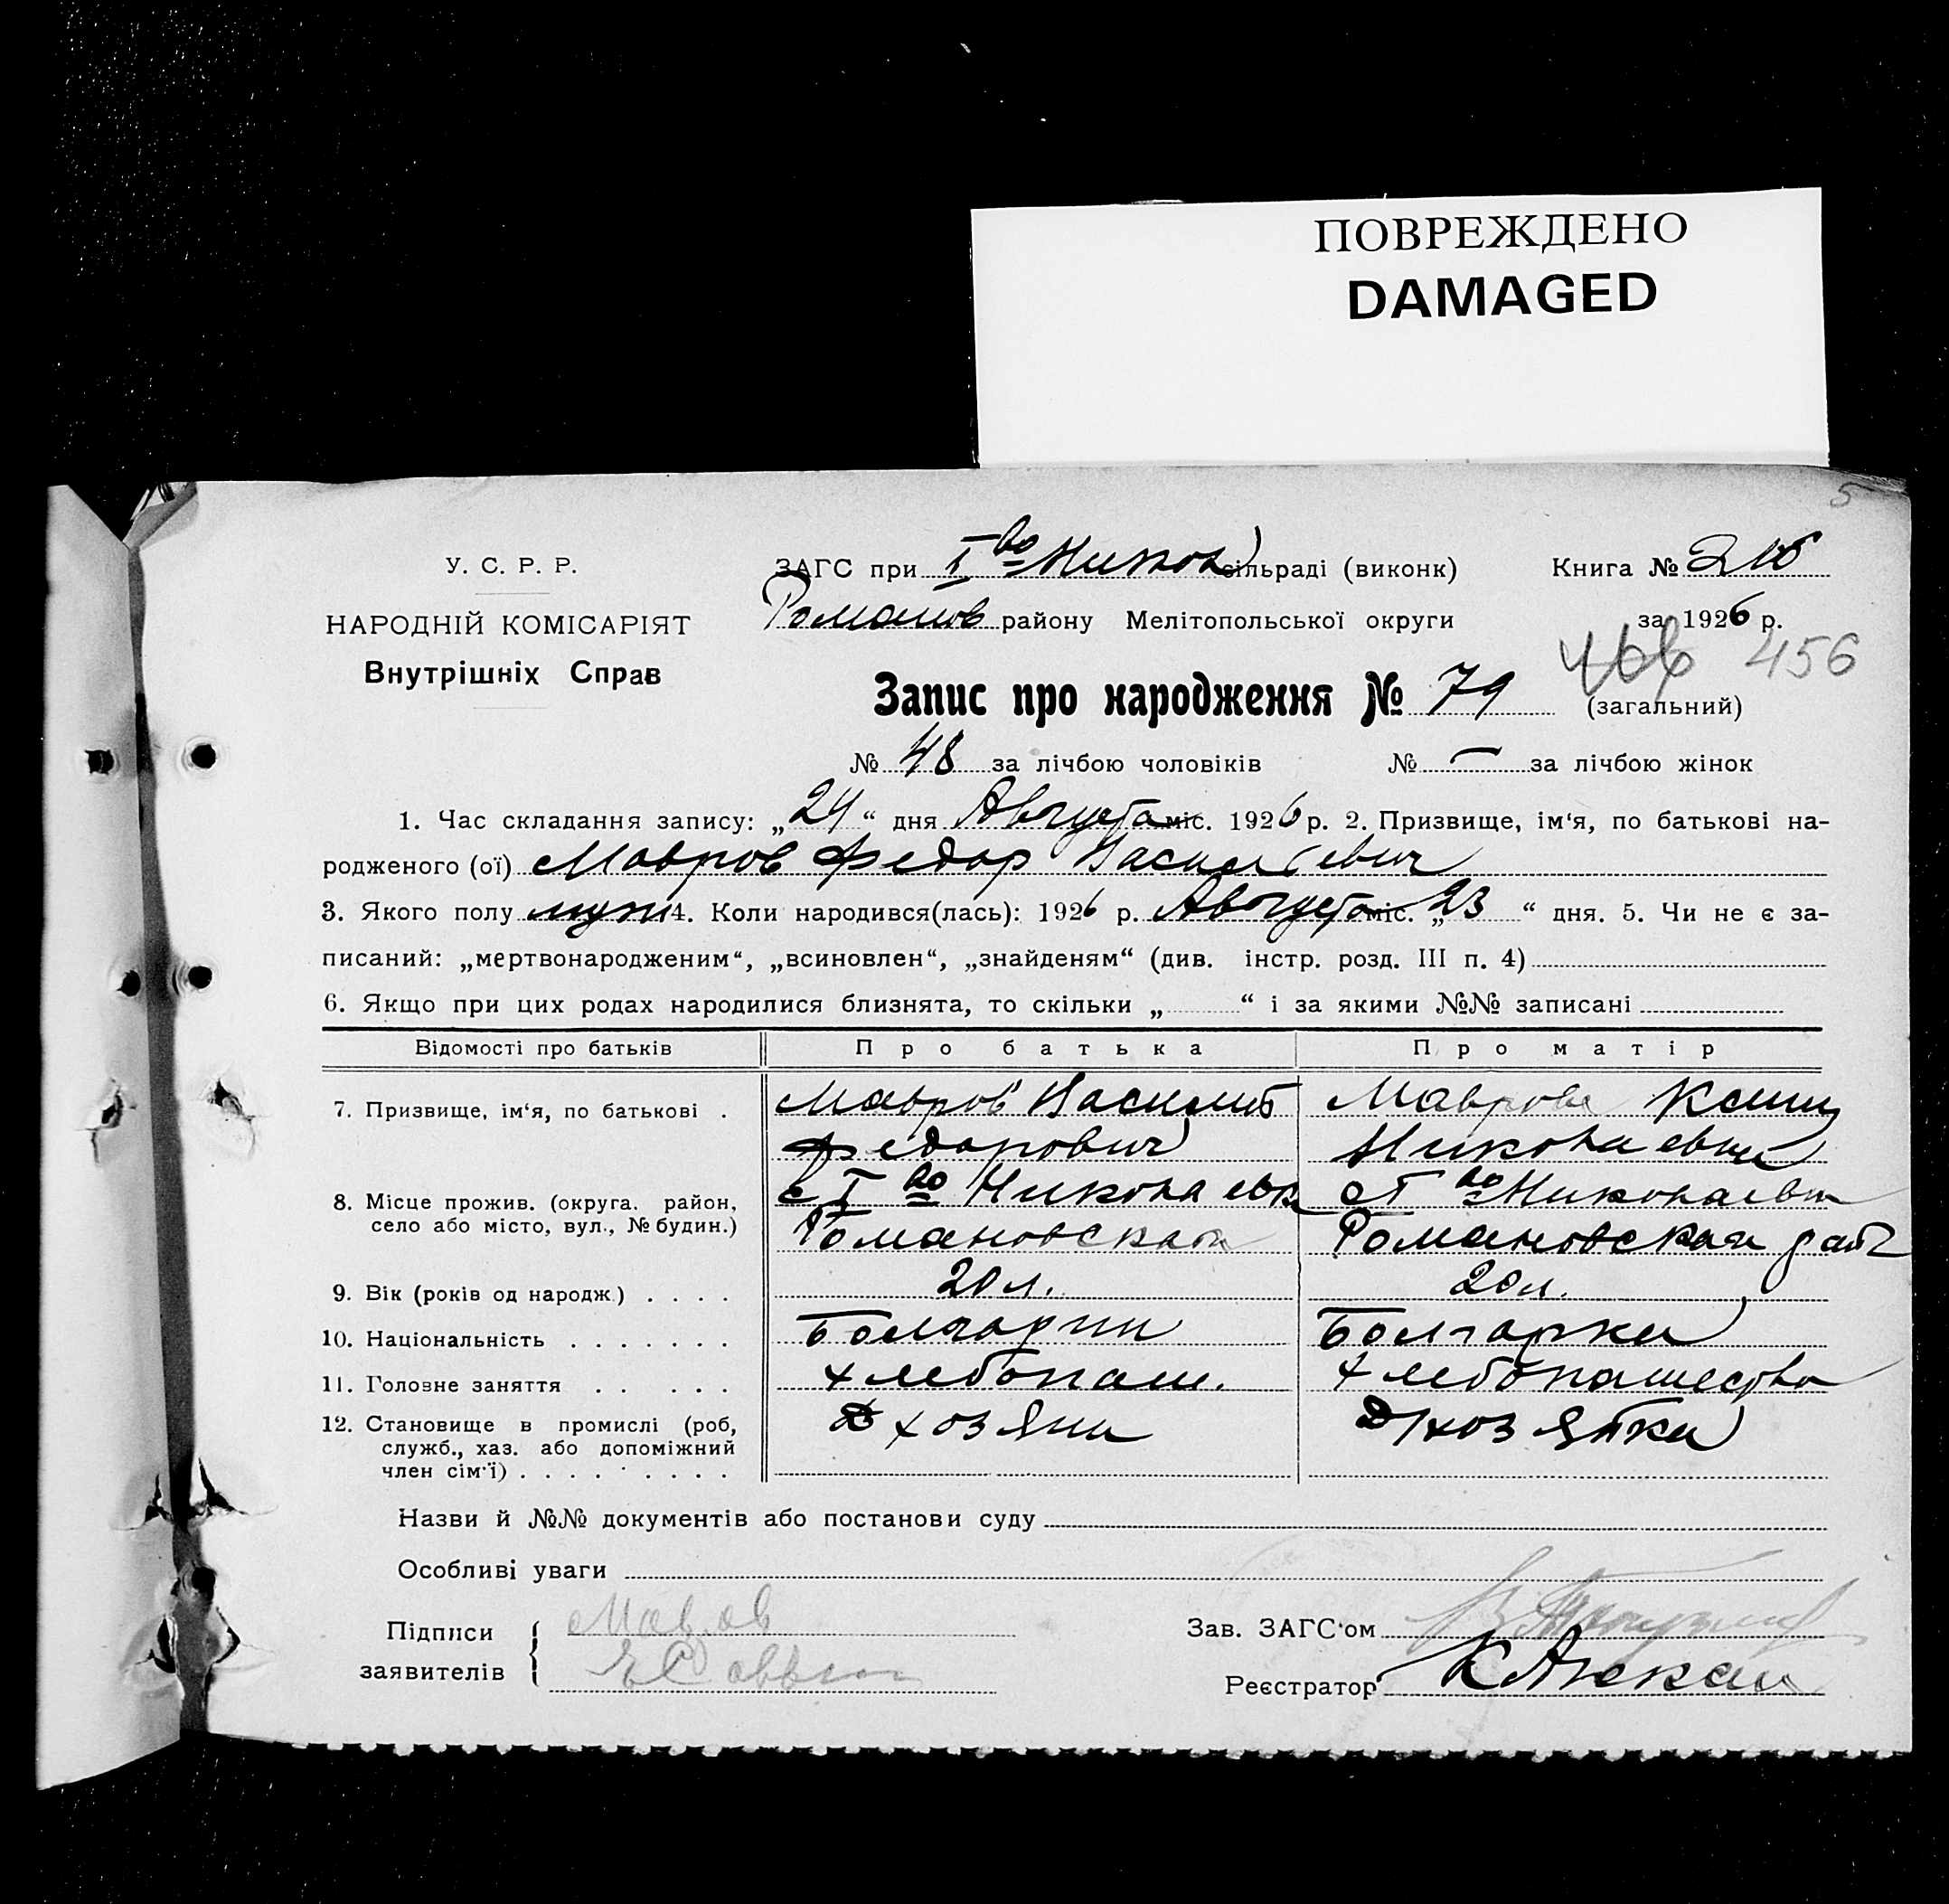 ПОВРЕЖДЕНО
DAMAGED
5
У. С. Р. Р.
НАРОДНІЙ КОМІСАРІЯТ
Внутрішніх Справ
ЗАГС при І во Никол сільраді (виконк) Книга №
Романов району Мелітопольської округи за 1926 р.
456
Запис про народження № 79 (загальний)
№ 48 за лічбою чоловіків № — за лічбою жінок
1. Час складання запису: „24“ дня Августа міс. 1926 р. 2. Призвище, ім‘я, по батькові на-
родженого (ої) Мавров Федор Васильевич
3. Якого полу муж 4. Коли народився(лась): 1926 р. Августа міс. „23“ дня. 5. Чи не є за-
писаний: „мертвонародженим“, „всиновлен“, „знайденям“ (див. інстр. розд. III п. 4)
6. Якщо при цих родах народилися близнята, то скільки „ “ і за якими №№ записані
Відомості про батьків Про батька Про матір
7. Призвище, ім‘я, по батькові . Мавров Василий Маврова
Федорович Николаевна
8. Місце прожив. (округа. район, с І во Николаевк с І во Николаевк
село або місто, вул., № будин.) Романовская Романовская
9. Вік (років од народж.) . . . . 20 л. 20 л.
10. Національність . . . . . . . Болгарин Болгарка
11. Головне заняття . . . . . Хлебопаш. Хлебопашество
12. Становище в промислі (роб, хозяин хозяйка
служб., хаз. або допоміжний
член сім‘ї) . . . . . . . . .
Назви й №№ документів або постанови суду
Особливі уваги
Підписи Мавров
заявителів
Зав. ЗАГС‘ом
Реєстратор